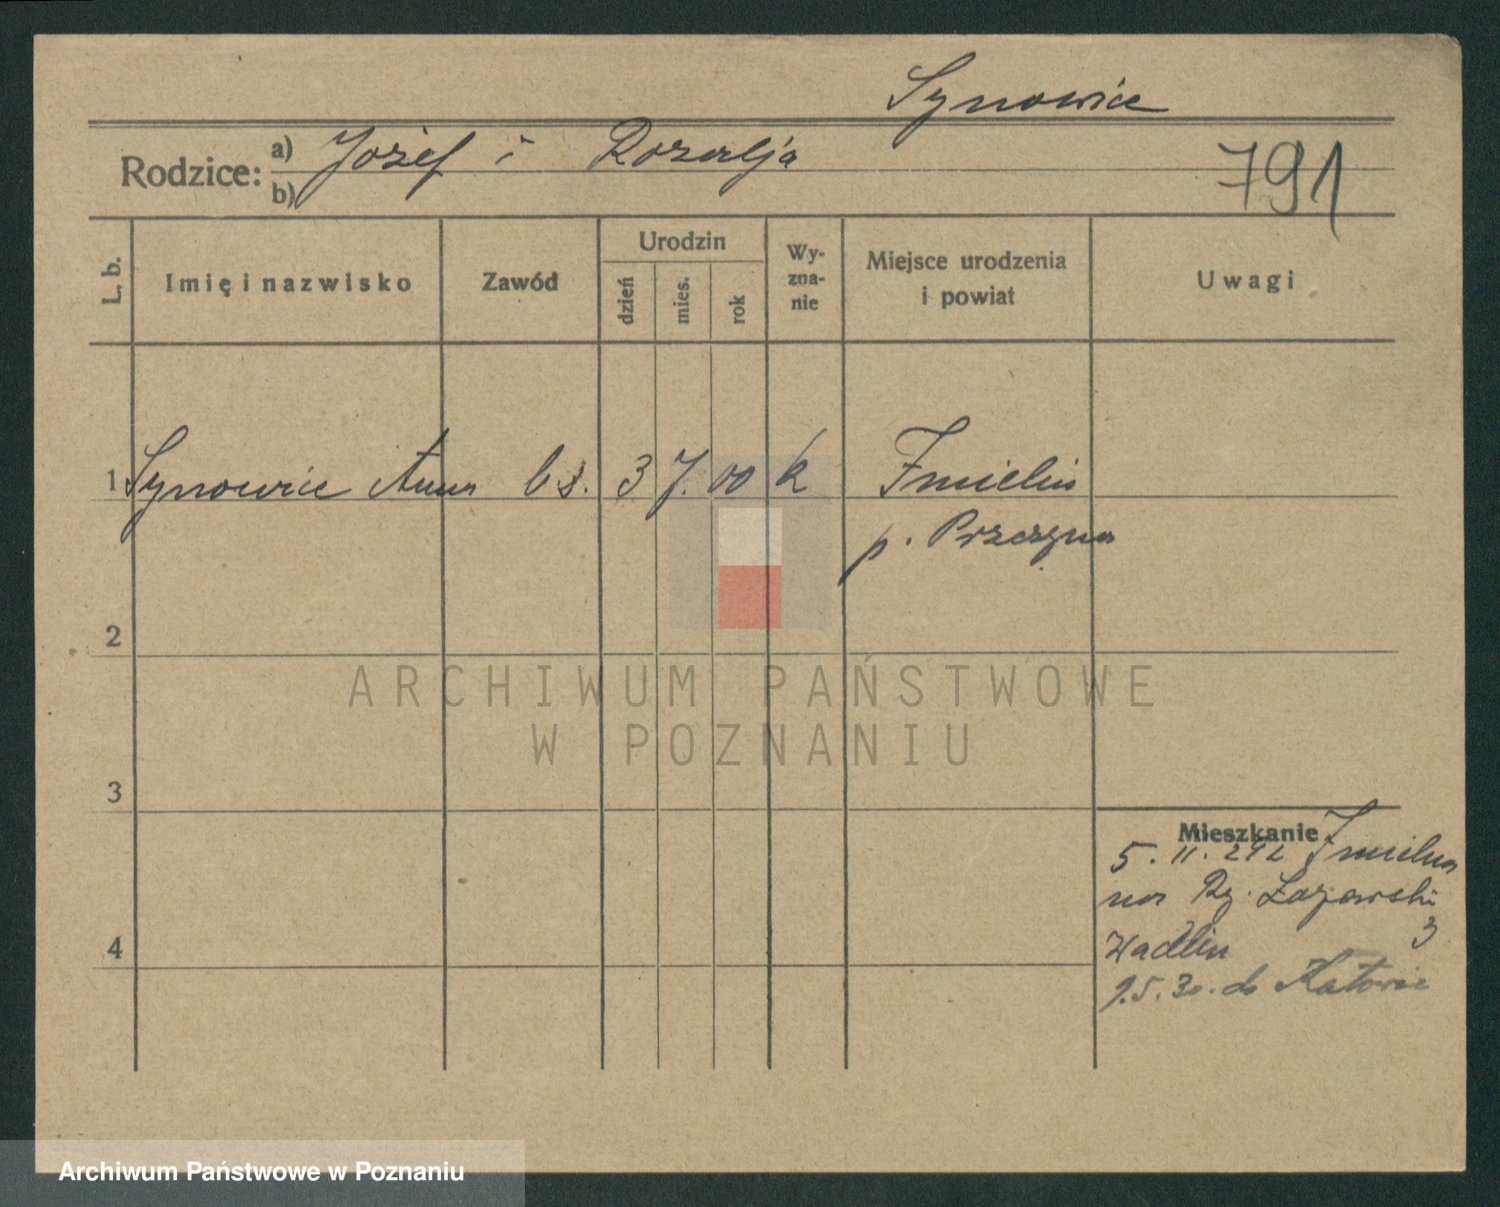 Synowiec
Rodzice: a) Józef i Rozalja
b)
791
L. b.
Imię i nazwisko
Zawód
Urodzin
dzień
mies.
rok
Wy-
zna-
nie
Miejsce urodzenia
i powiat
Uwagi
1 Synowiec Anna b s. 3 7. 00 k Imielin
p. Pszczyna
2
3
4
Mieszkanie
5. 11. 29 z Imielina
na Łazarski
3
9.5.30. do Katowic
ARCHIWUM PAŃSTWOWE
W POZNANIU
Archiwum Państwowe w Poznaniu